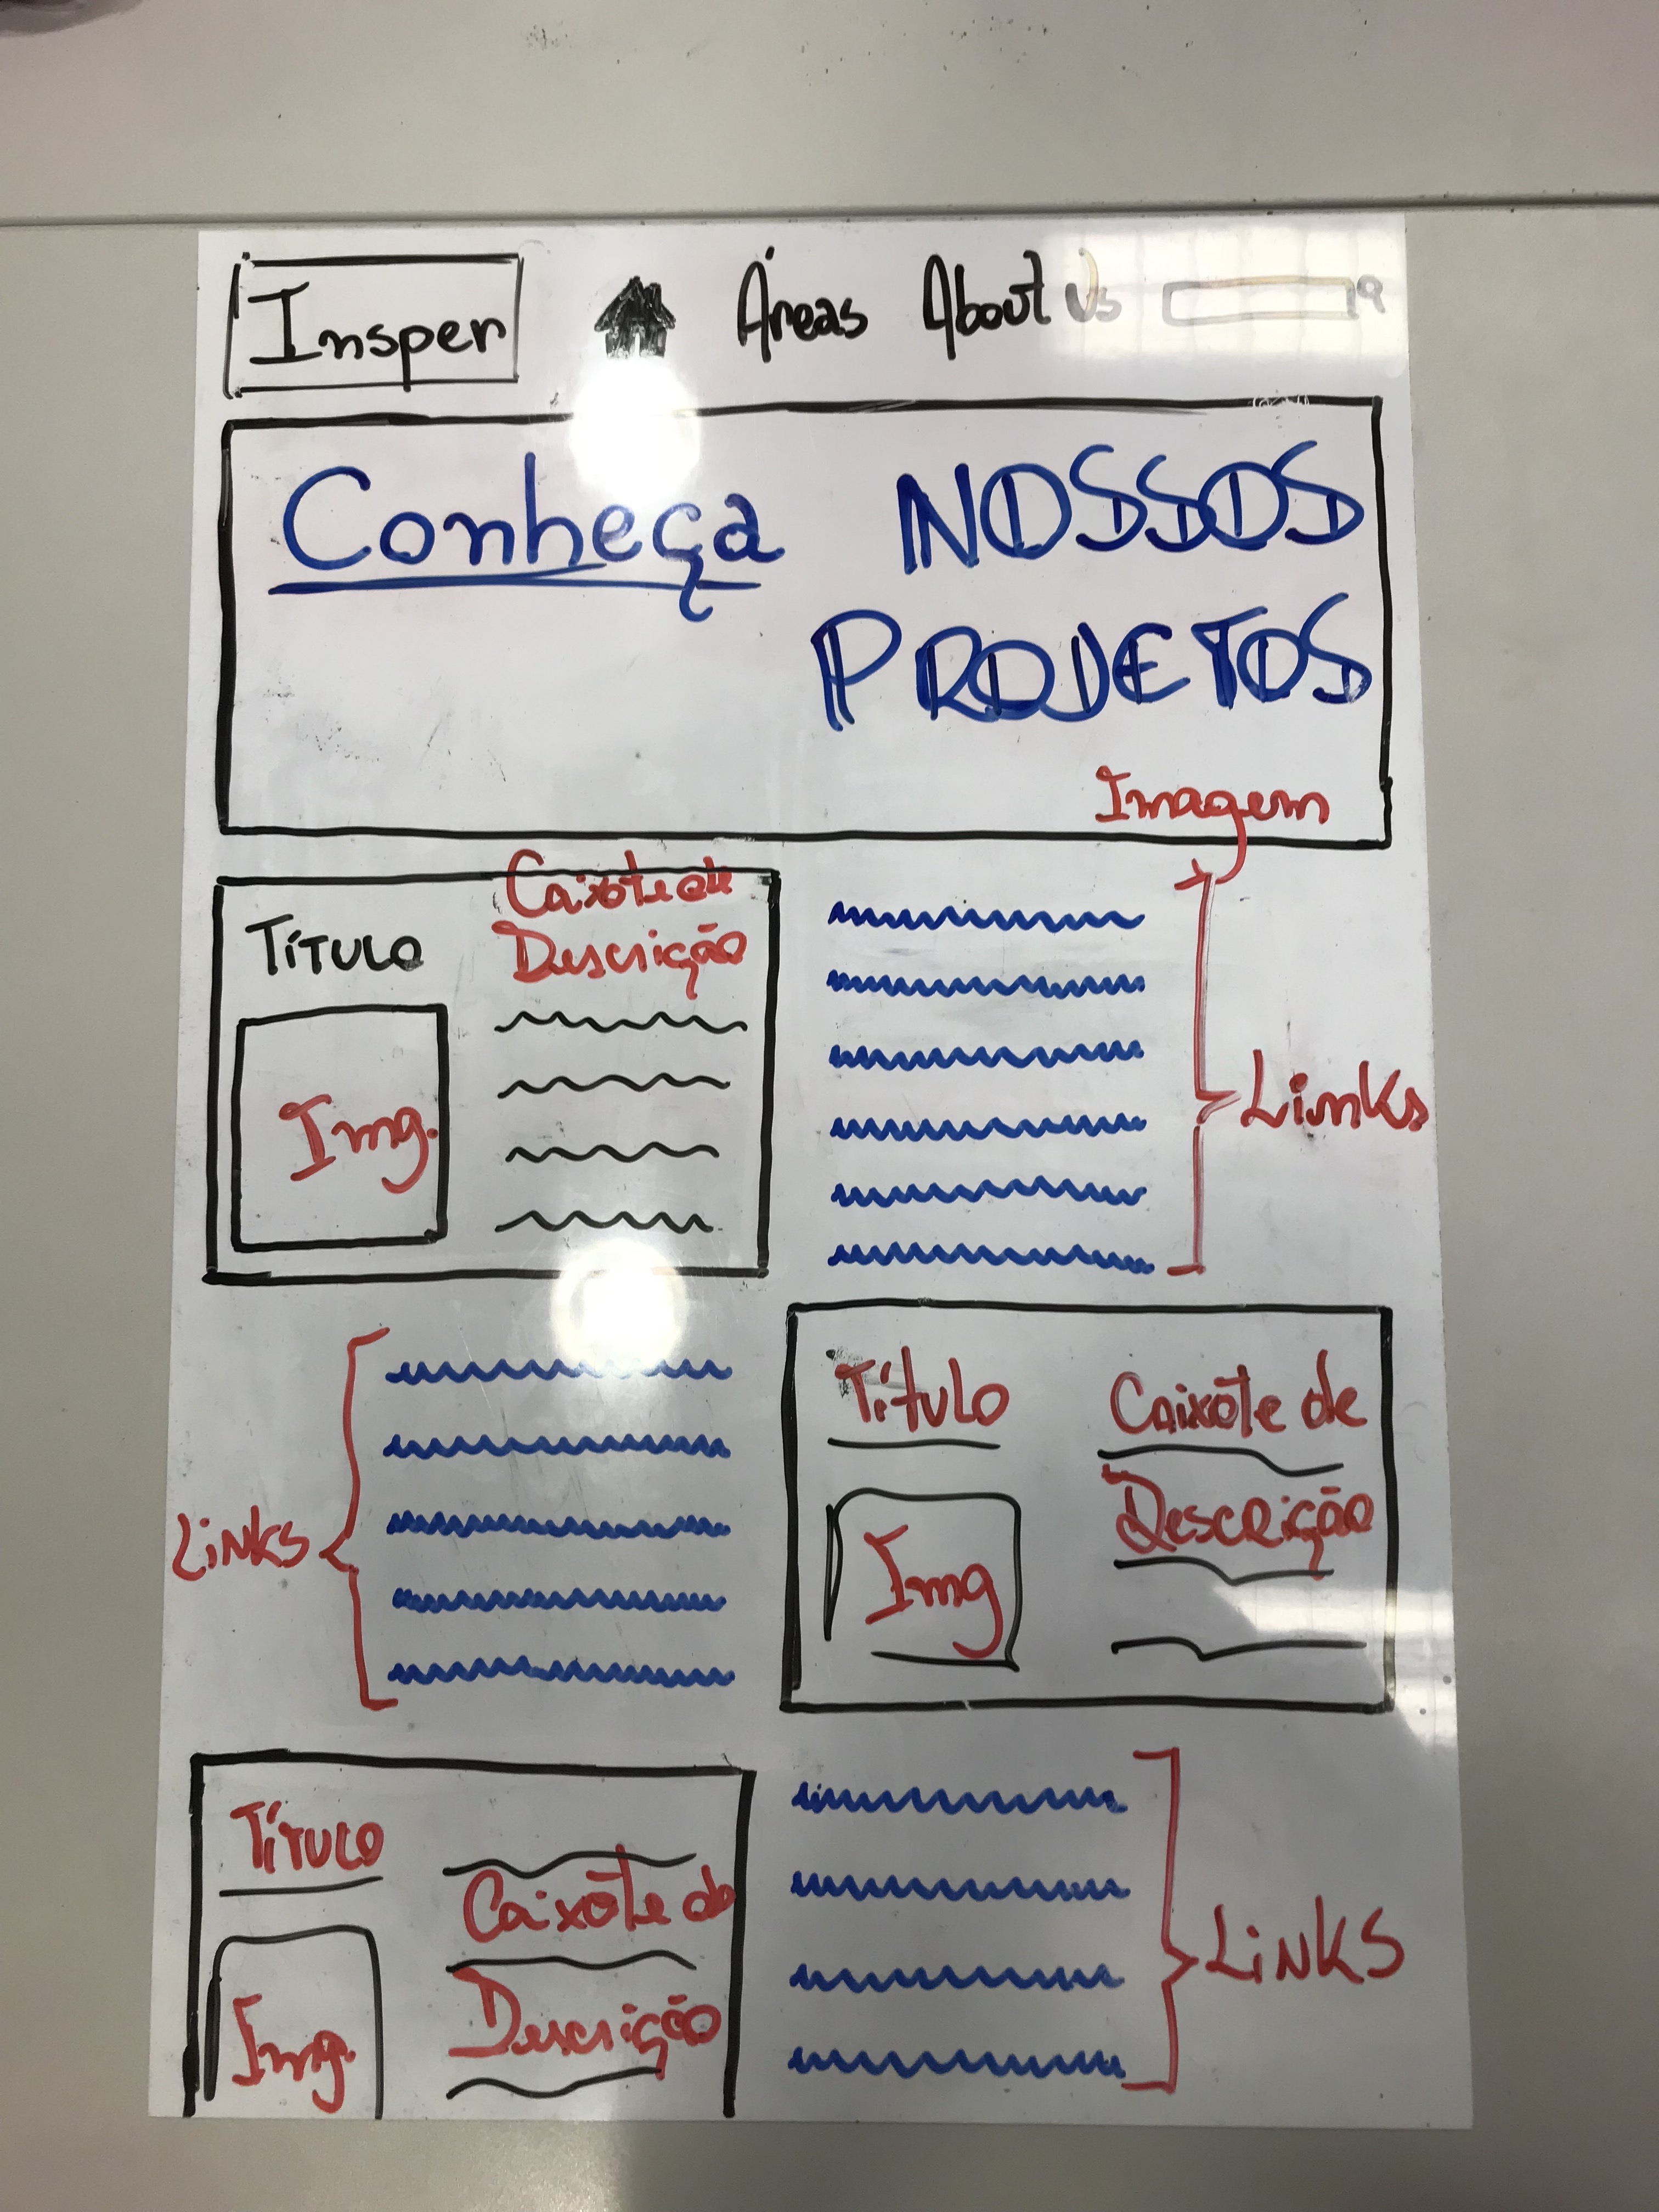 Insper Áreas About Us
Conheça NOSSOS
PROJETOS
Imagem
TÍTULO
Caixote de
Descrição
Img.
Links
Links
Título
Caixote de
Descrição
Img
TÍTULO
Caixote de
Descrição
Img.
LINKS